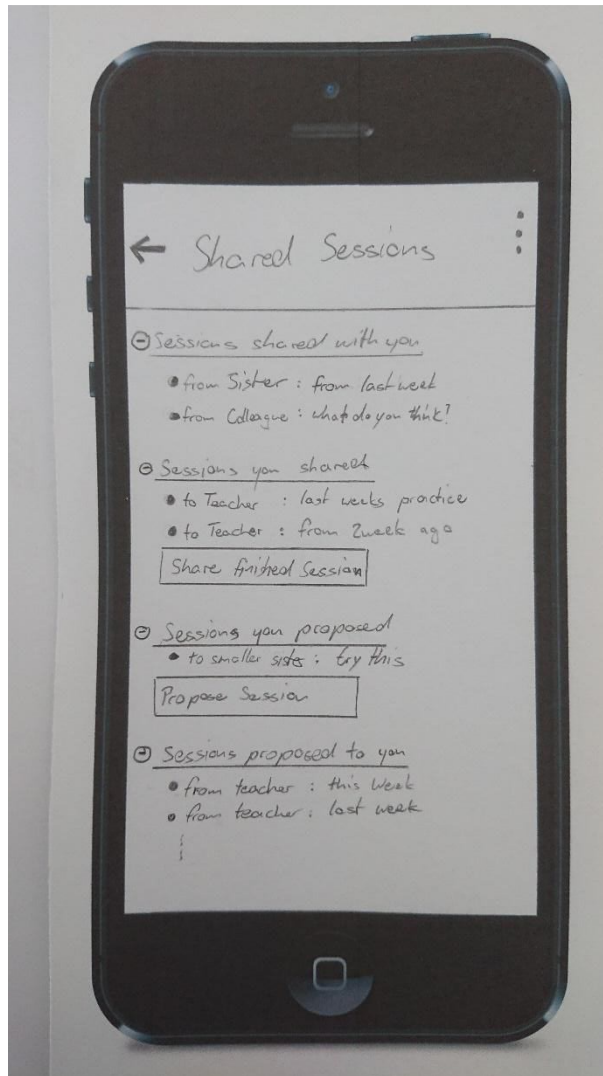 ← Shared Sessions
⊖ Sessions shared with you
• from Sister : from last week
• from Colleague : what do you think?
⊖ Sessions you shared
• to Teacher : last weeks practice
• to Teacher : from 2week ago
Share finished Session
⊖ Sessions you proposed
• to smaller sister : try this
Propose Session
⊖ Sessions proposed to you
• from teacher : this week
• from teacher : last week